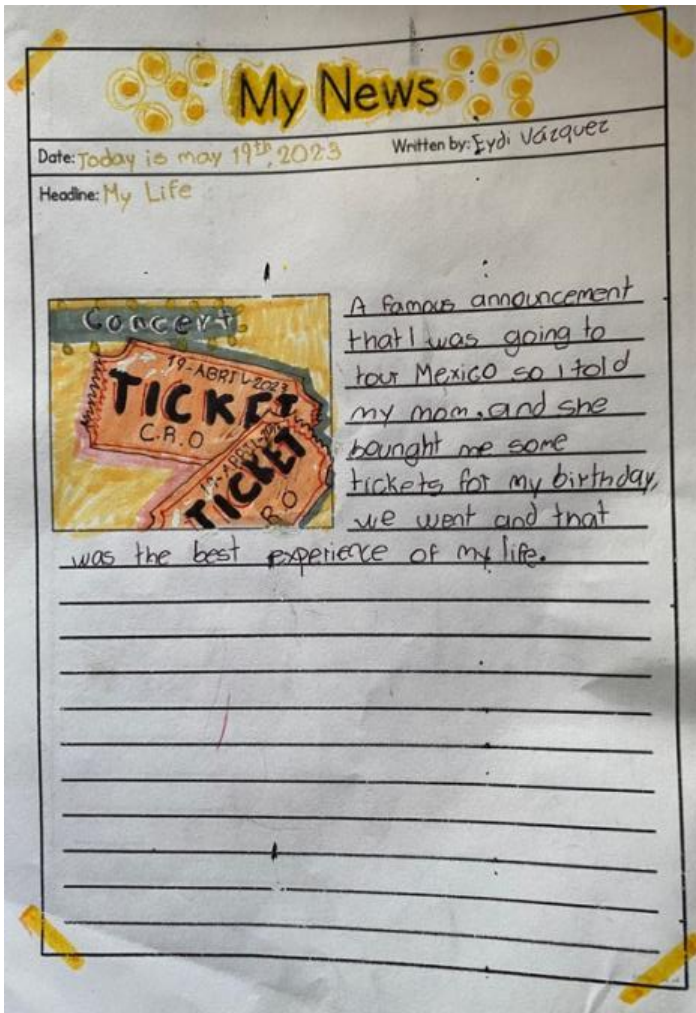 My News
Date: Today is may 19th, 2023 Written by: Eydi Vázquez
Headline: My Life
Concert
19-ABRIL-2023
TICKET
C.R.O
TICKET
R O
A famous announcement
that I was going to
tour Mexico so I told
my mom, and she
bounght me some
tickets for my birthday,
we went and that
was the best experience of my life.